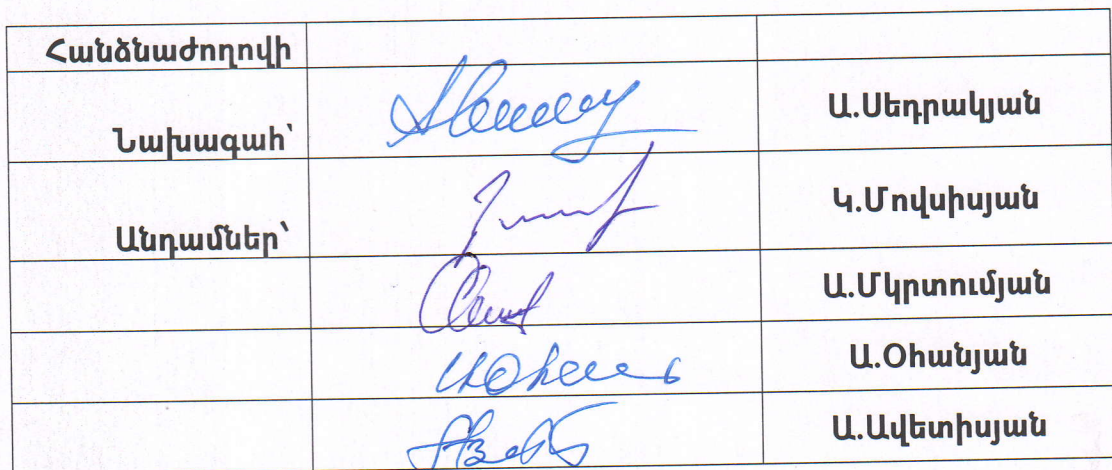 Հանձնաժողովի
Նախագահ՝ Ա.Սեդրակյան
Անդամներ՝ Կ.Մովսիսյան
Ա.Մկրտումյան
Ա.Օհանյան
Ա.Ավետիսյան